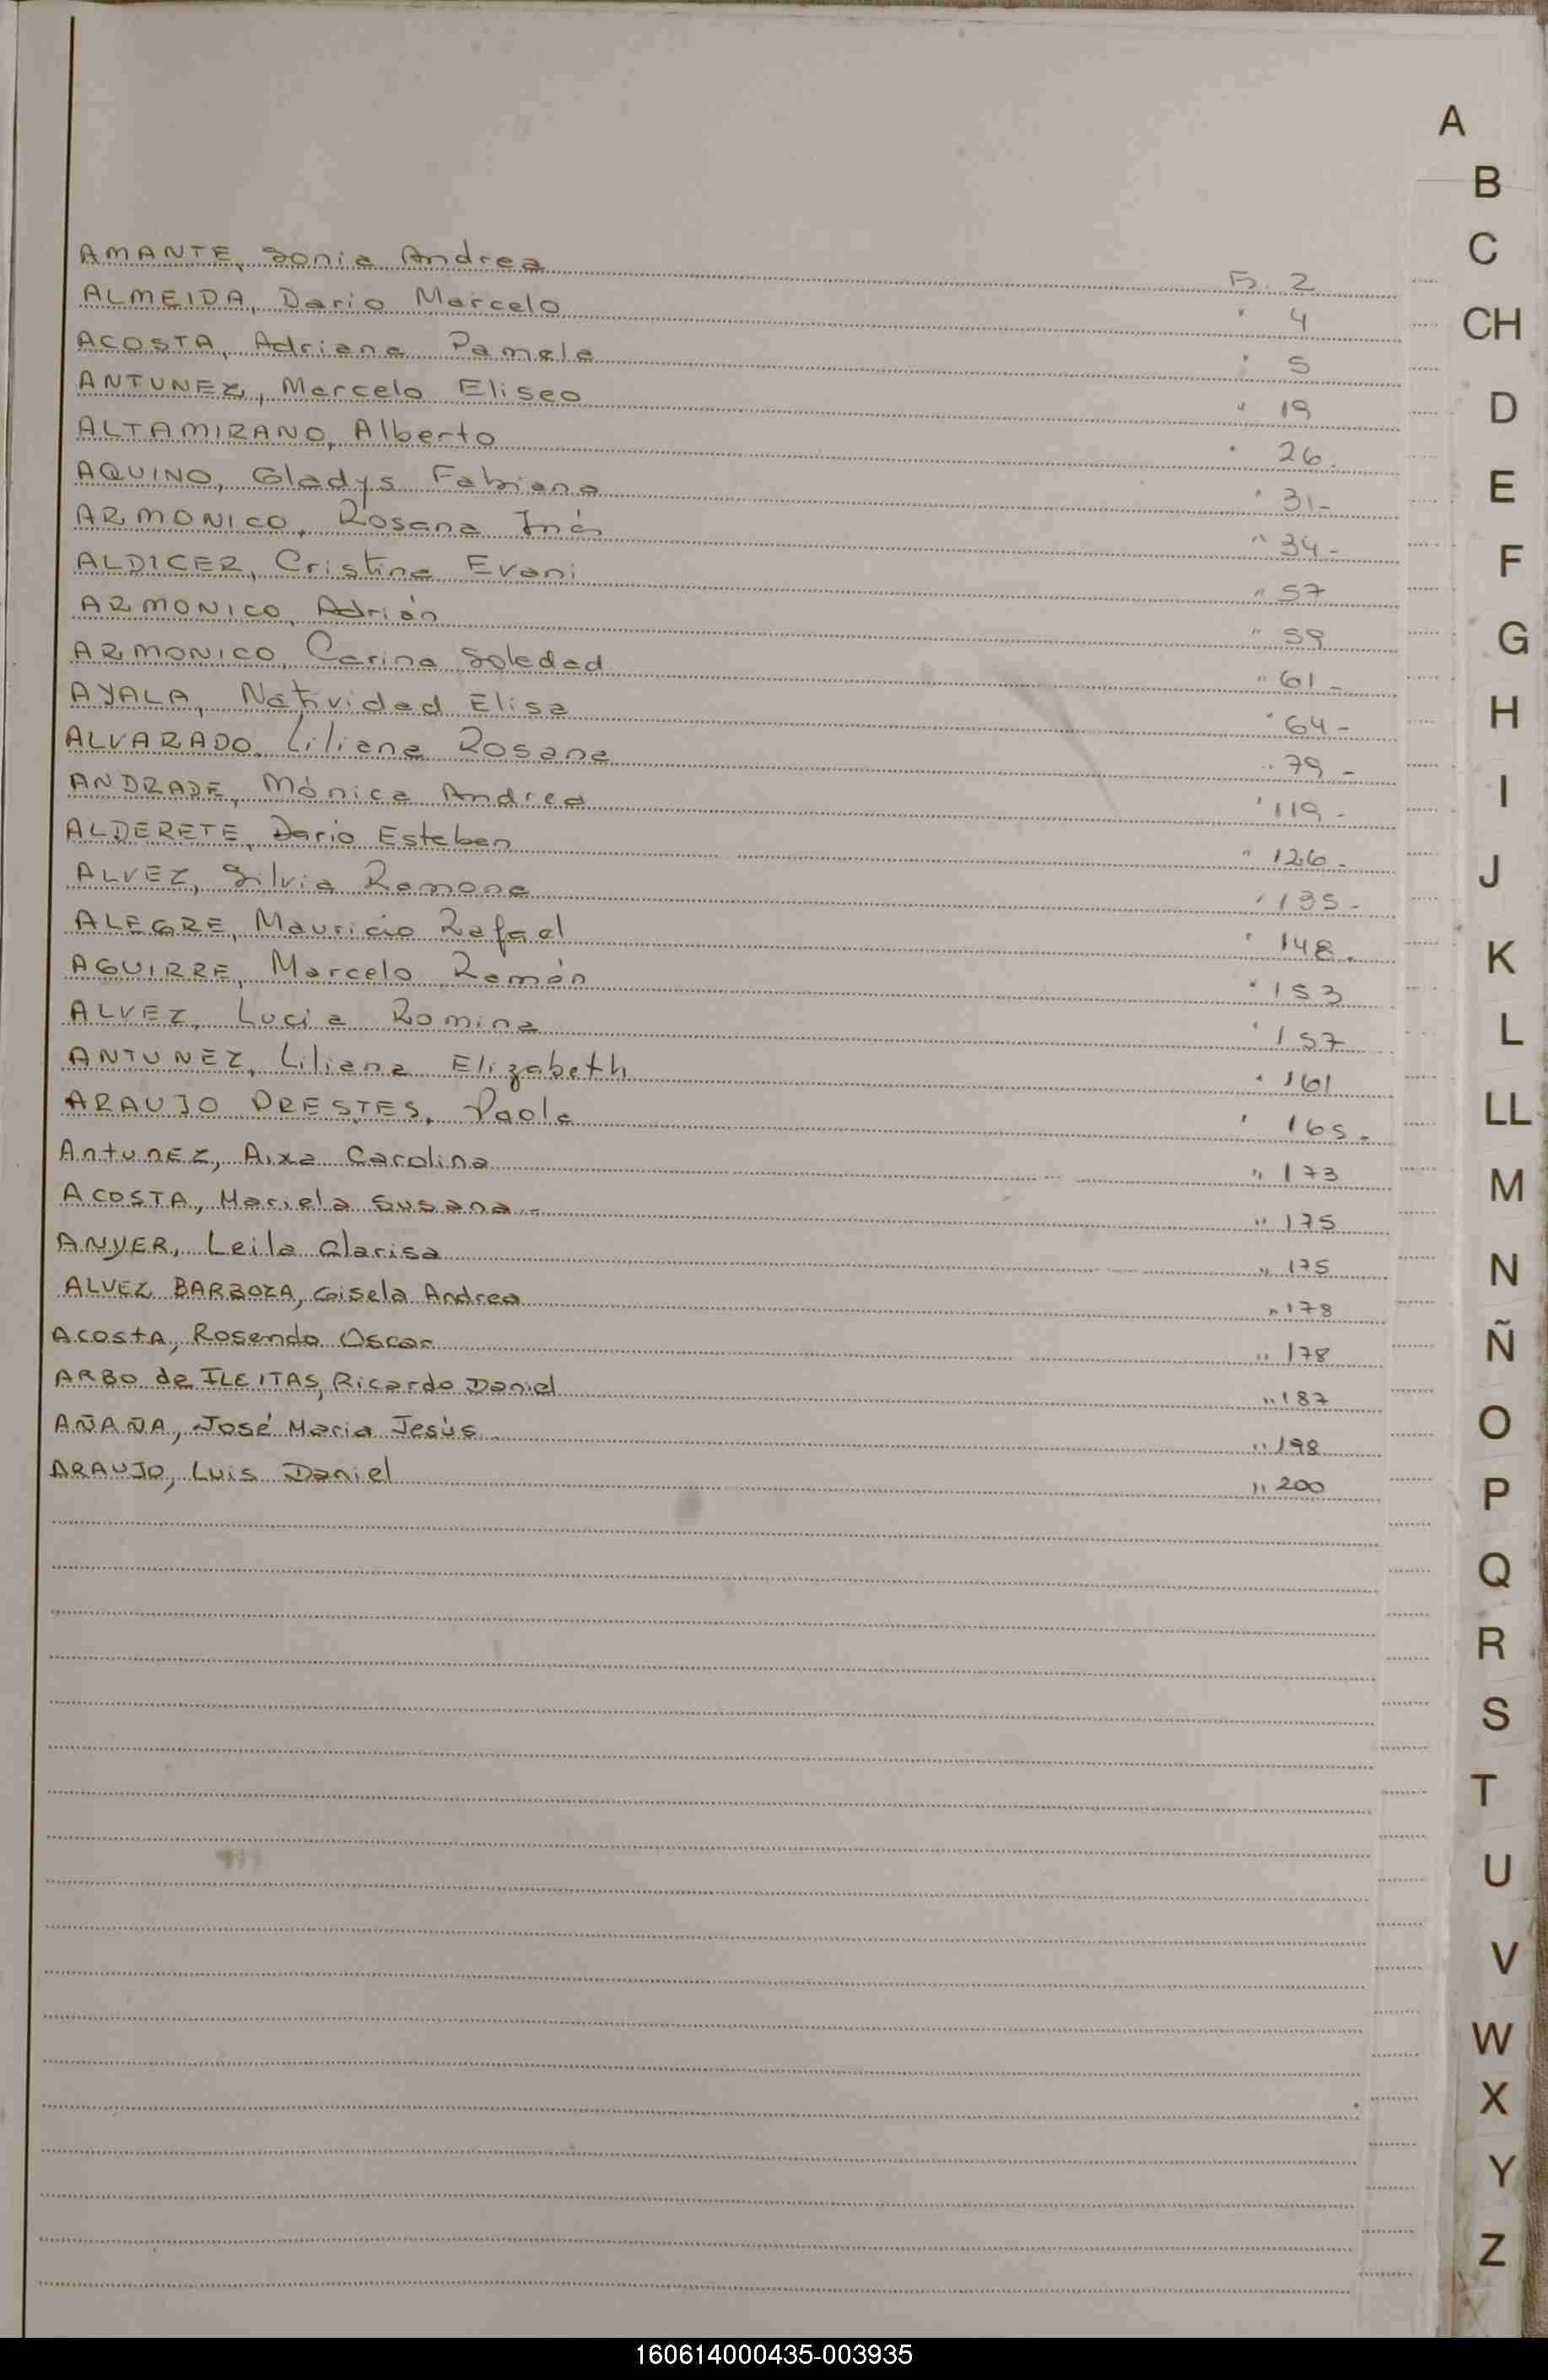 A
B
C
CH
D
E
F
G
H
I
J
K
L
LL
M
N
Ñ
O
P
Q
R
S
T
U
V
W
X
Y
Z
AMANTE, Sonia Andrea Fs. 2
ALMEIDA, Dario Marcelo " 4
ACOSTA, Adriana Pamela " 5
ANTUNEZ, Marcelo Eliseo " 19
ALTAMIRANO, Alberto " 26.
AQUINO, Gladys Fabiana " 31-
ARMONICO, Rosana Inés " 34-
ALDICER, Cristina Evani " 57
ARMONICO, Adrián " 59
ARMONICO, Carina Soledad " 61-
AYALA, Natividad Elisa " 64-
ALVARADO, Liliana Rosana " 79-
ANDRADE, Mónica Andrea " 119-
ALDERETE, Dario Esteban " 126-
ALVEZ, Silvia Ramona " 135-
ALEGRE, Mauricio Rafael " 148.
AGUIRRE, Marcelo Ramón " 153
ALVEZ, Lucia Romina " 157
ANTUNEZ, Liliana Elizabeth " 161
ARAUJO PRESTES, Paola " 165.
AntunEz, Aixa Carolina " 173
ACOSTA, Mariela Susana.- " 175
ANYER, Leila Clarisa " 175
ALVEZ BARBOZA, Gisela Andrea " 178
AcostA, Rosendo Oscar " 178
ARBO de ILEITAS, Ricardo Daniel " 187
AÑAÑA, José Maria Jesús " 198
ARAUJO, Luis Daniel " 200
160614000435-003935